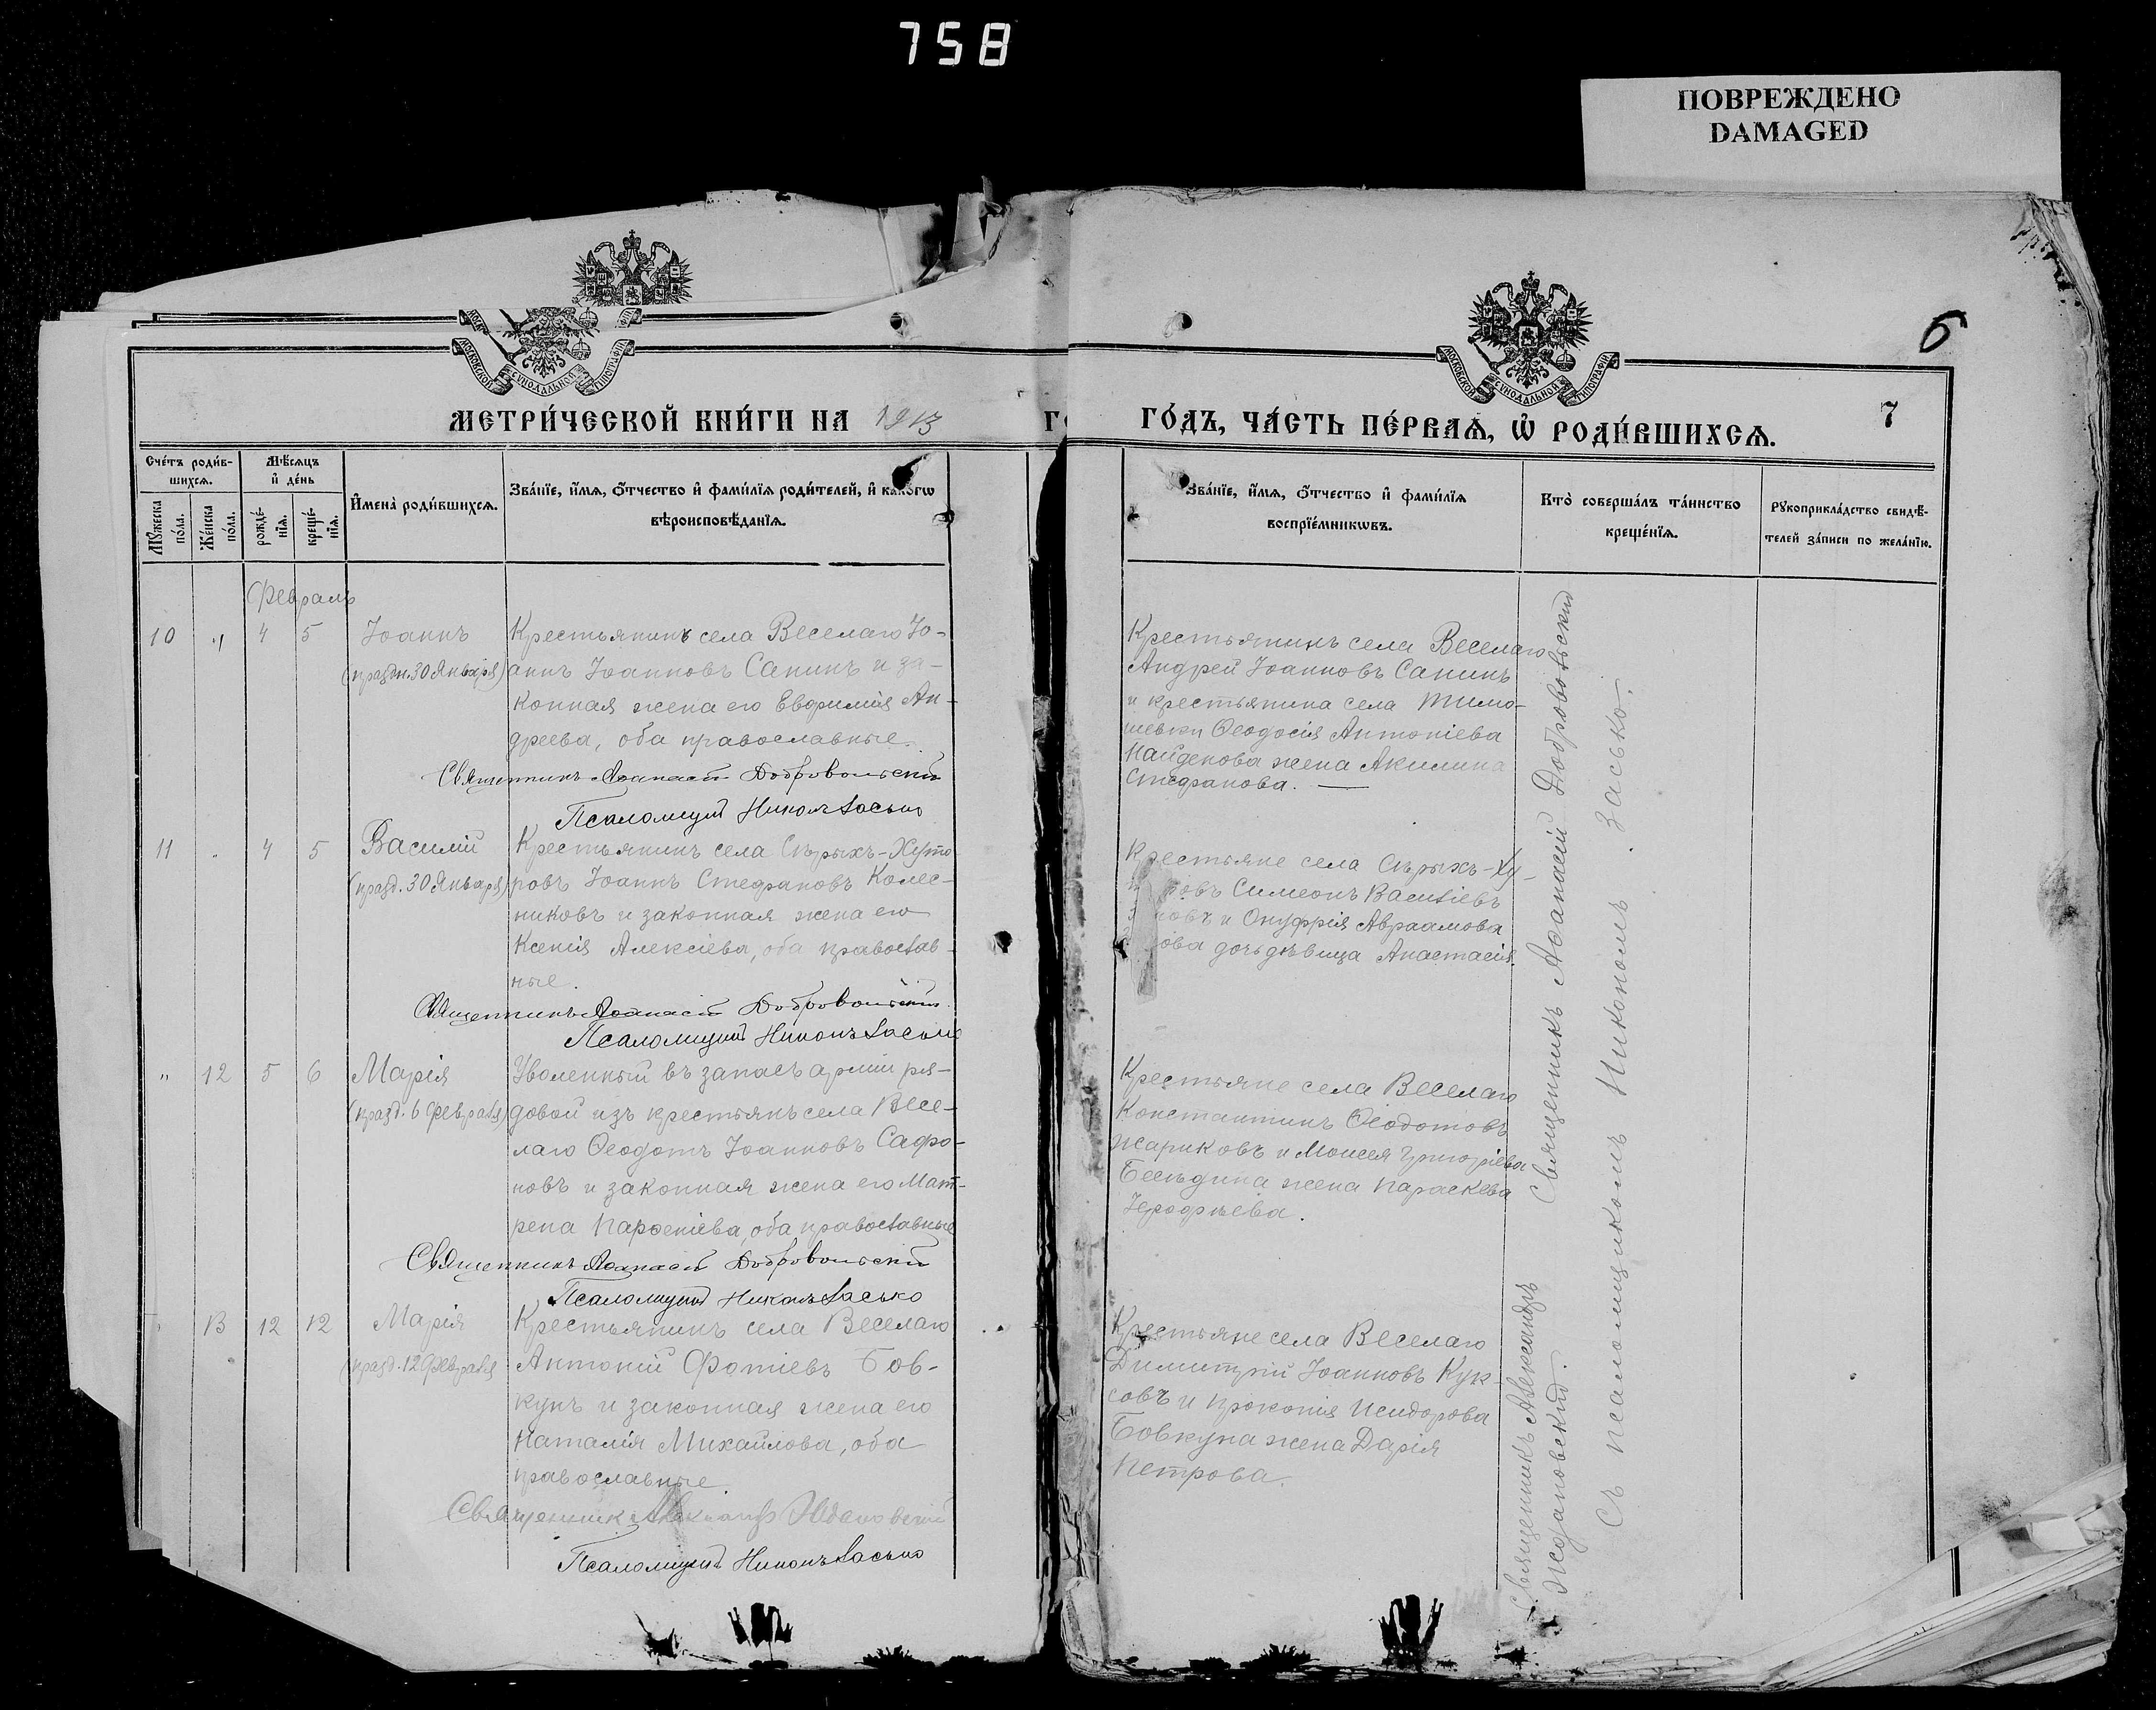 758
ПОВРЕЖДЕНО
DAMAGED
6
МОСКОВСКОЙ СѴНОДАЛЬНОЙ ТИПОГРАФІИ
МОСКОВСКОЙ СѴНОДАЛЬНОЙ ТИПОГРАФІИ
МЕТРИ́ЧЕСКОЙ КНИ́ГИ НА 1913
ГО́ДЪ, ЧА́СТЬ ПЕ́РВАѦ, Ѡ҆ РОДИ́ВШИХСѦ.
7
Сче́тъ роди́в-
шихсѧ.
Мꙋ́жеска
по́ла.
Же́нска
по́ла.
Мѣ́сѧцъ
и҆ де́нь
рожде́-
нїѧ.
креще́-
нїѧ.
И҆мена̀ роди́вшихсѧ.
Зва́нїе, и҆́мѧ, ѻ҆́тчество и҆ фами́лїѧ роди́телей, и҆ како́гѡ
вѣроисповѣ́данїѧ.
Зва́нїе, и҆́мѧ, ѻ҆́тчество и҆ фами́лїѧ
воспрїе́мникѡвъ.
Кто̀ соверша́лъ та́инство
креще́нїѧ.
Рꙋкоприкла́дство свидѣ́-
телей за́писи по жела́нїю.
Февраль
10 " 4 5 Іоаннъ
(праздн. 30 Января)
Крестьянинъ села Веселаго Іо-
аннъ Іоанновъ Санинъ и за-
конная жена его Евфимія Ан-
дреева, оба православные.
Священникъ Аѳанасій Добровольскій
Псаломщикъ Никонъ Засько
Крестьянинъ села Веселаго
Андрей Іоанновъ Санинъ
и крестьянина села Тимо-
шевки Ѳеодосія Антоніева
Найденова жена Акилина
Стефанова.
11 " 4 5 Василій
(празд. 30 Января)
Крестьянинъ села Сѣрыхъ-Хуто
ровъ Іоаннъ Стефановъ Колес-
никовъ и законная жена его
Ксенія Алексіева, оба православ-
ные.
Священникъ Аѳанасій Добровольскій
Псаломщикъ Никонъ Засько
Крестьяне села Сѣрыхъ-Ху-
ровъ Симеонъ Василіевъ
новъ и Онуфрія Авраамова
ова дочь дѣвица Анастасія.
" 12 5 6 Марія
(празд. 6 Февраля)
Уволенный въ запасъ арміи ря-
довой изъ крестьянъ села Весе-
лаго Ѳеодотъ Іоанновъ Сафро-
новъ и законная жена его Мат-
рена Парѳеніева, оба православные
Священникъ Аѳанасій Добровольскій
Псаломщикъ Никонъ Засько
Крестьяне села Веселаго
Константинъ Ѳеодотовъ
Жариковъ и Моисея Григоріева
Бесѣдина жена Параскева
13 12 12 Марія
(празд. 12 Февраля)
Крестьянинъ села Веселаго
Антоній Фотіевъ Бов-
кунъ и законная жена его
Наталія Михайлова, оба
православные.
Священник Александр Ждановский
Псаломщикъ Никонъ Засько
Крестьяне села Веселаго
Димитрій Іоанновъ Кук-
совъ и Прокопія Исидорова
Бовкуна жена Дарія
Петрова.
Священникъ Аѳанасій Добровольскій
Священникъ Александръ
Ждановскій.
Съ псаломщикомъ Никономъ Засько.